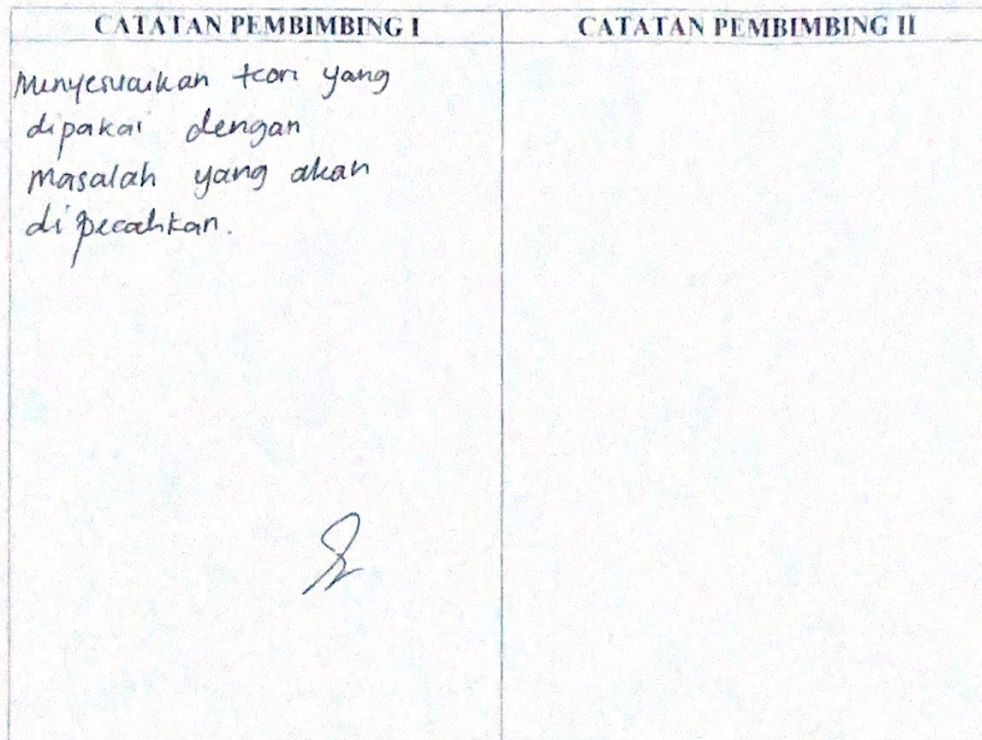 CATATAN PEMBIMBING I
CATATAN PEMBIMBING II
Menyesuaikan teori yang
dipakai dengan
masalah yang akan
dipecahkan.